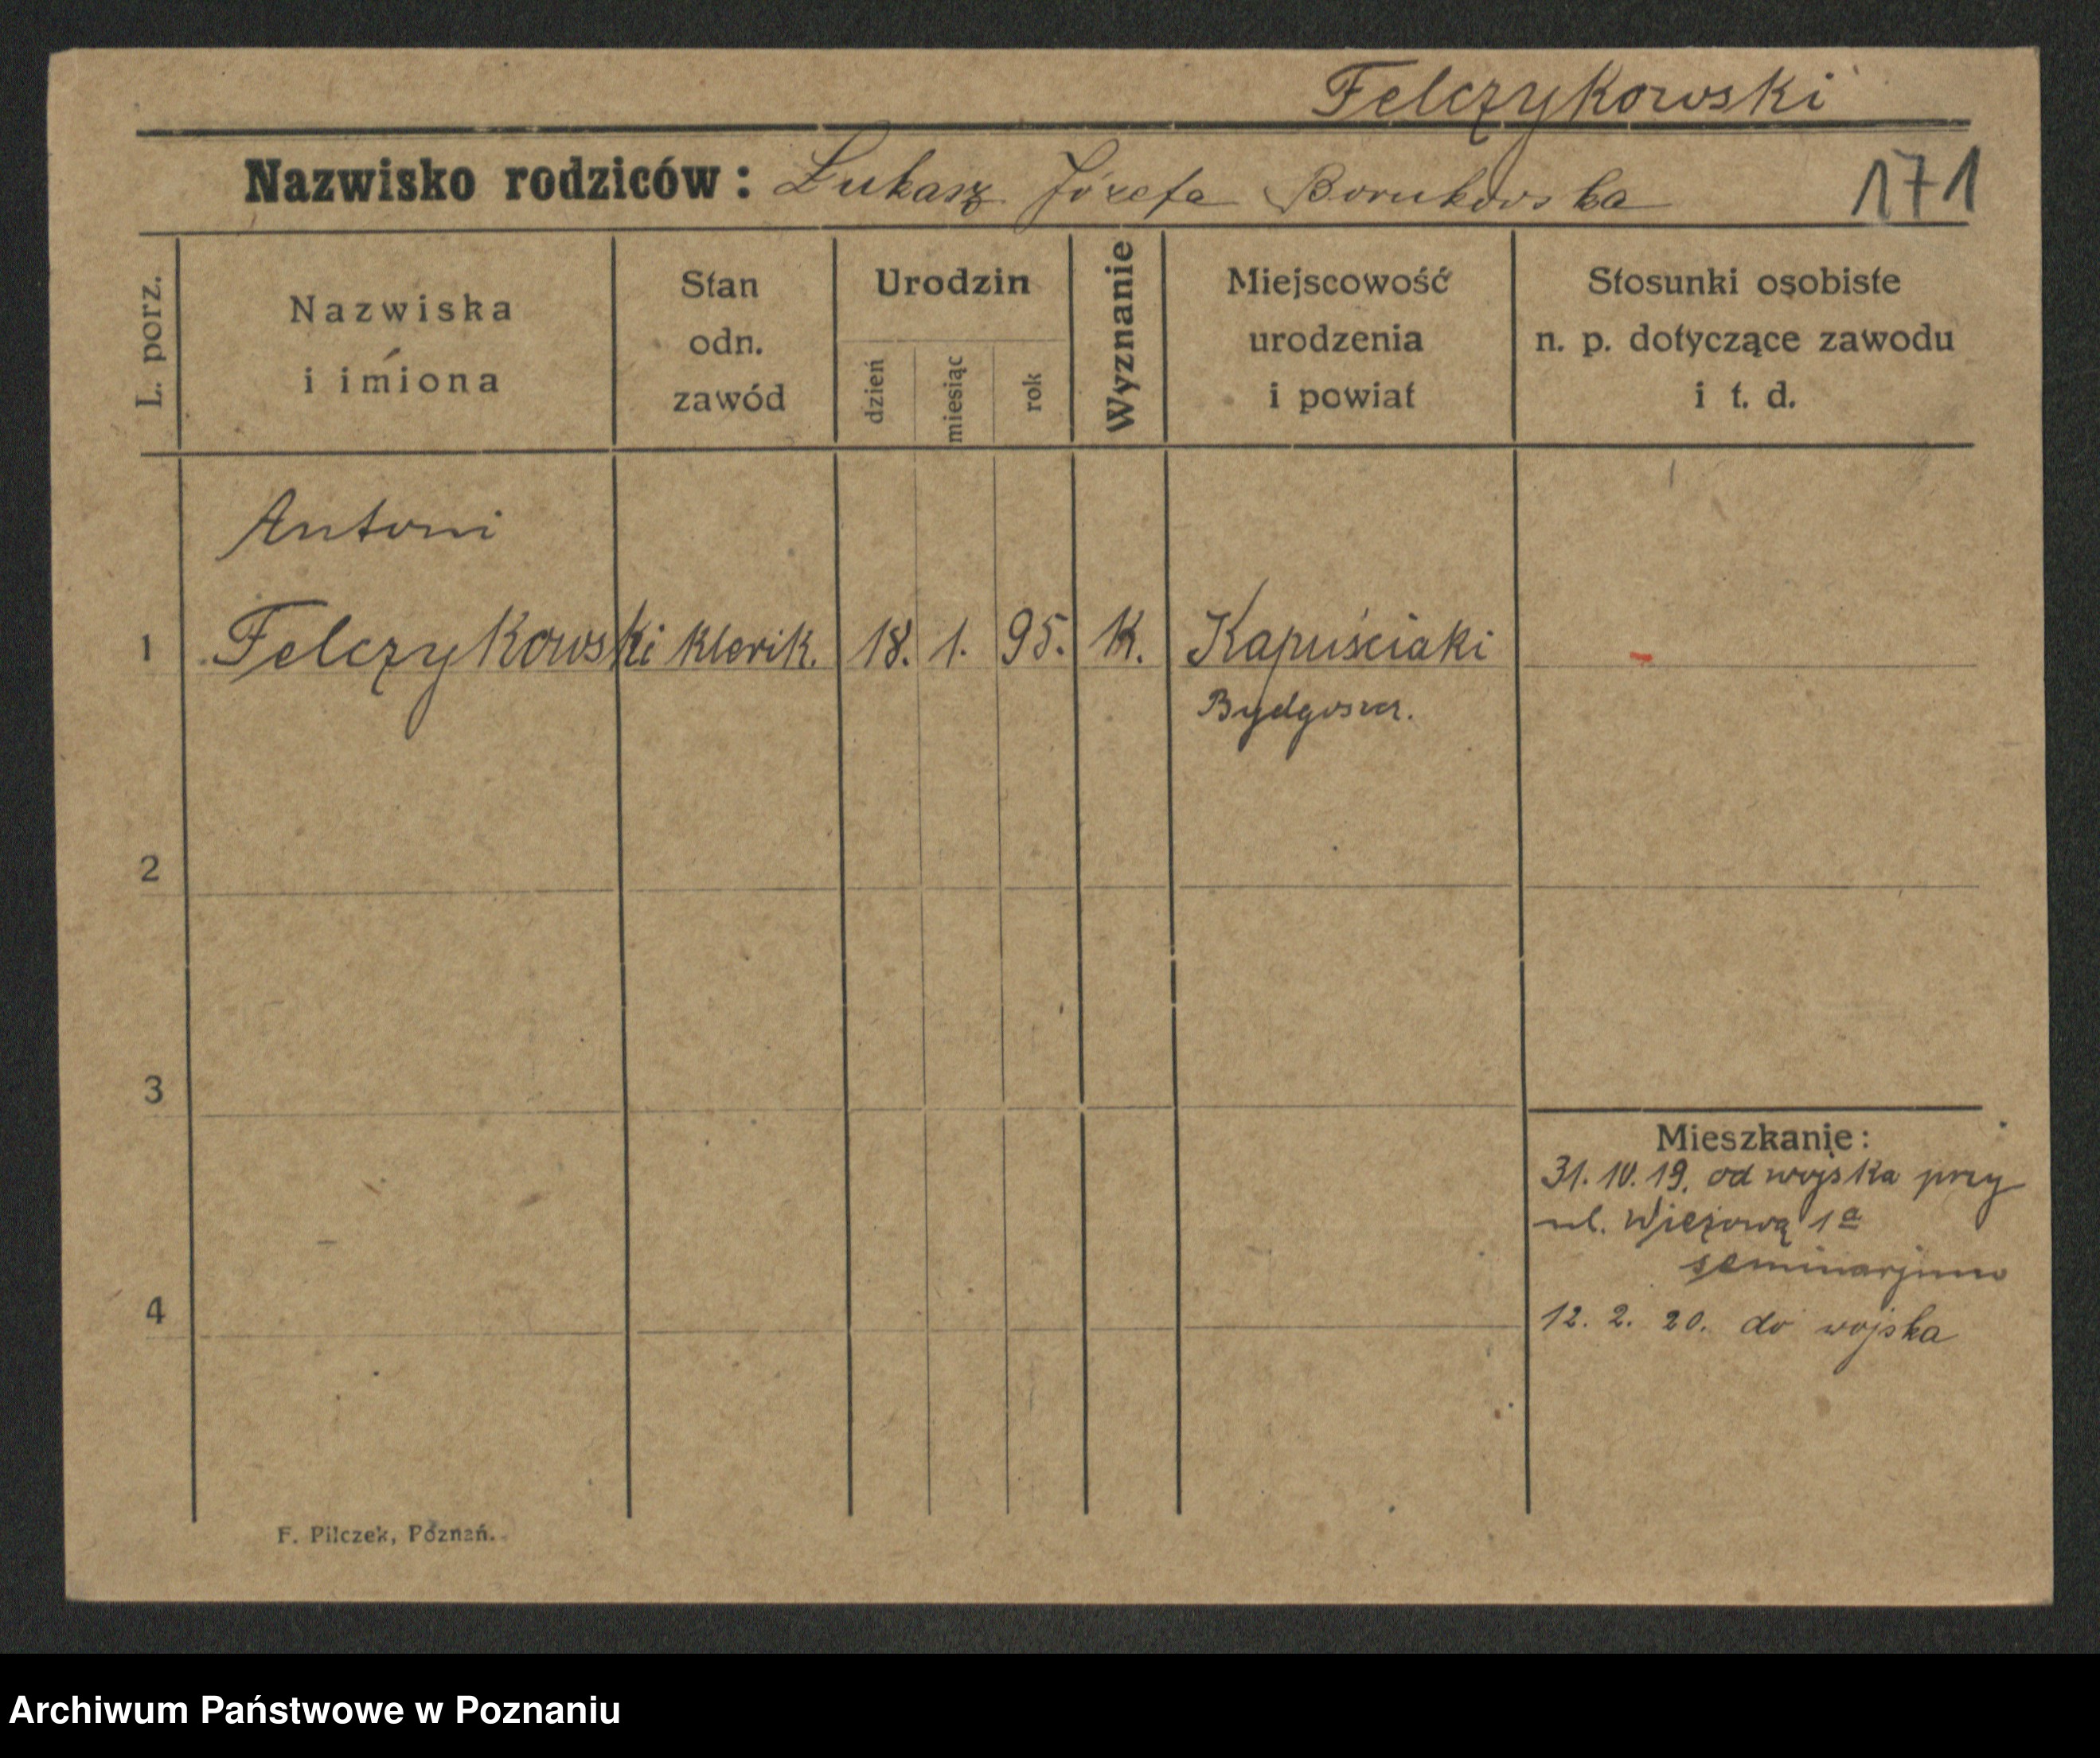 Felczykowski
Nazwisko rodziców: Łukasz Józefa Borukowska
171
L. porz.
Nazwiska
i imiona
Stan
odn.
zawód
Urodzin
dzień
miesiąc
rok
Wyznanie
Miejscowość
urodzenia
i powiat
Stosunki osobiste
n. p. dotyczące zawodu
i t. d.
Antoni
1 Felczykowski klerik. 18. 1. 95. K. Kapuściaki
Bydgoszcz.
2
3
4
Mieszkanie:
31. 10. 19. od wojska przy
ul. Wieżową 1a
seminarjum
12. 2. 20. do wojska
F. Pilczek, Poznań.
Archiwum Państwowe w Poznaniu